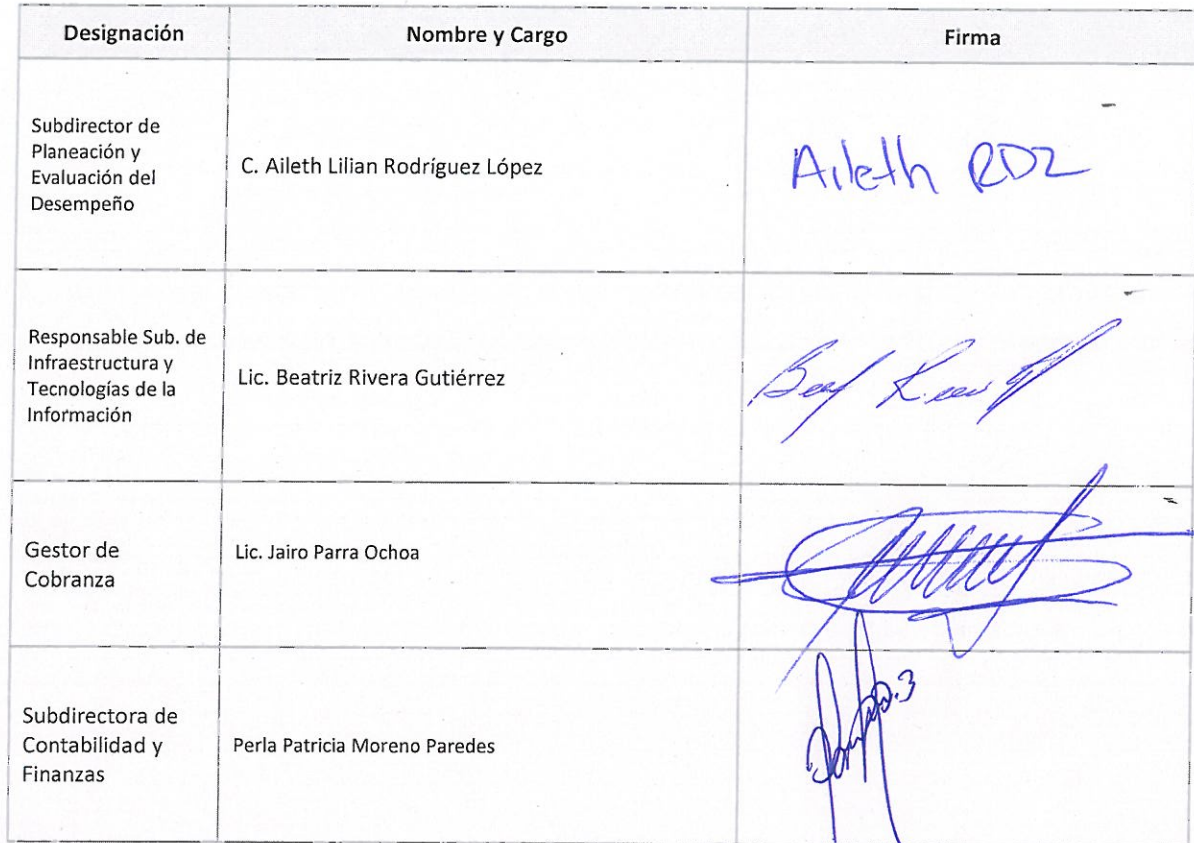 Designación
Nombre y Cargo
Firma
Subdirector de
Planeación y
Evaluación del
Desempeño
C. Aileth Lilian Rodríguez López
Aileth RDZ
Responsable Sub. de
Infraestructura y
Tecnologías de la
Información
Lic. Beatriz Rivera Gutiérrez
Gestor de
Cobranza
Lic. Jairo Parra Ochoa
Subdirectora de
Contabilidad y
Finanzas
Perla Patricia Moreno Paredes